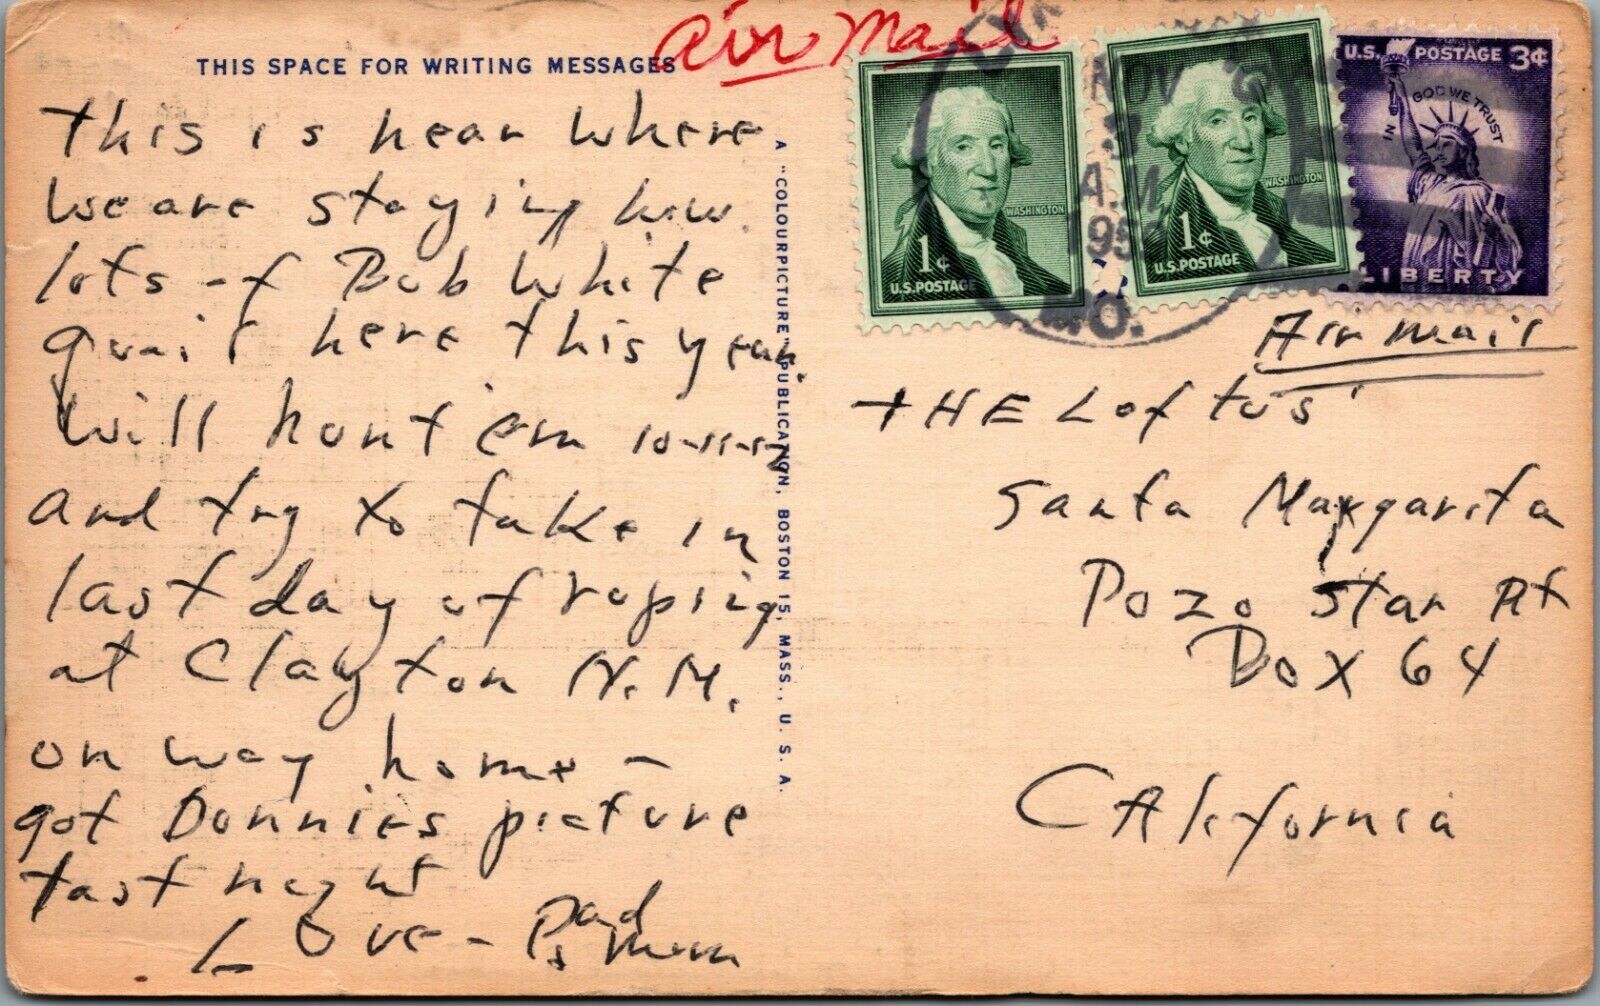 Air Mail
THIS SPACE FOR WRITING MESSAGES
This is near where
we are staying now.
lots of Bob White
quail here this year.
Will hunt em 10-11-12
and try to take in
last day of roping
at Clayton N.M.
on way home -
got Donnies picture
last night
Love - Dad
& Mom
A "COLOURPICTURE" PUBLICATION, BOSTON 15, MASS., U. S. A.
WASHINGTON
1¢
U.S. POSTAGE
WASHINGTON
1¢
U.S. POSTAGE
U.S. POSTAGE 3¢
IN GOD WE TRUST
LIBERTY
NOV
A.M.
MO.
Air mail
THE Loftus'
Santa Margarita
Pozo Star Rt
Box 64
CAlifornia